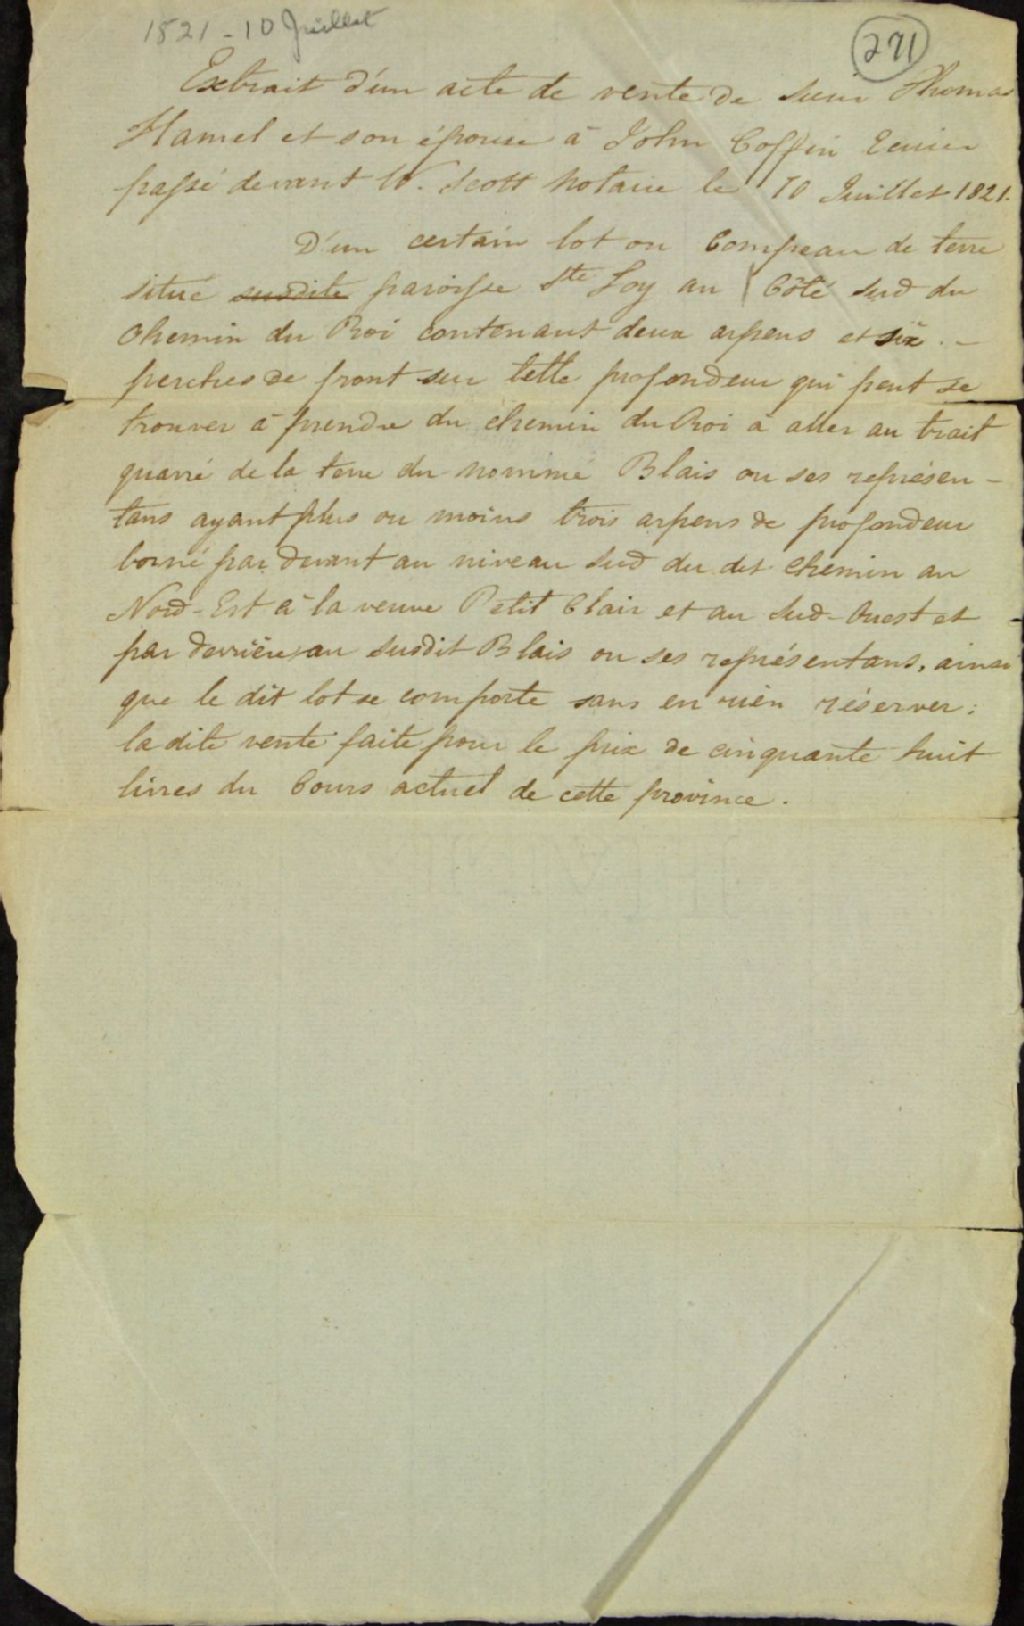 1821 - 10 Juillet
271
Extrait d'un acte de vente de Sieur Thomas
Hamel et son épouse à John Coffin Ecuier
passé devant W. Scott Notaire le 10 Juillet 1821.
D'un certain lot ou Compeau de terre
situé susdite paroisse Ste Foy au Côté Sud du
Chemin du Roi contenant deux arpens et six. -
perches de front sur telle profondeur qui peut se
trouver à prendre du chemin du Roi à aller au trait
quarré de la terre du nommé Blais ou ses représen-
tans ayant plus ou moins trois arpens de profondeur
borné par devant au niveau Sud du dit Chemin au
Nord-Est à la veuve Petit Clair et au Sud-Ouest et
par derrière au susdit Blais ou ses représentans, ainsi
que le dit lot se comporte sans en rien réserver :
la dite vente faite pour le prix de cinquante huit
livres du Cours actuel de cette province.